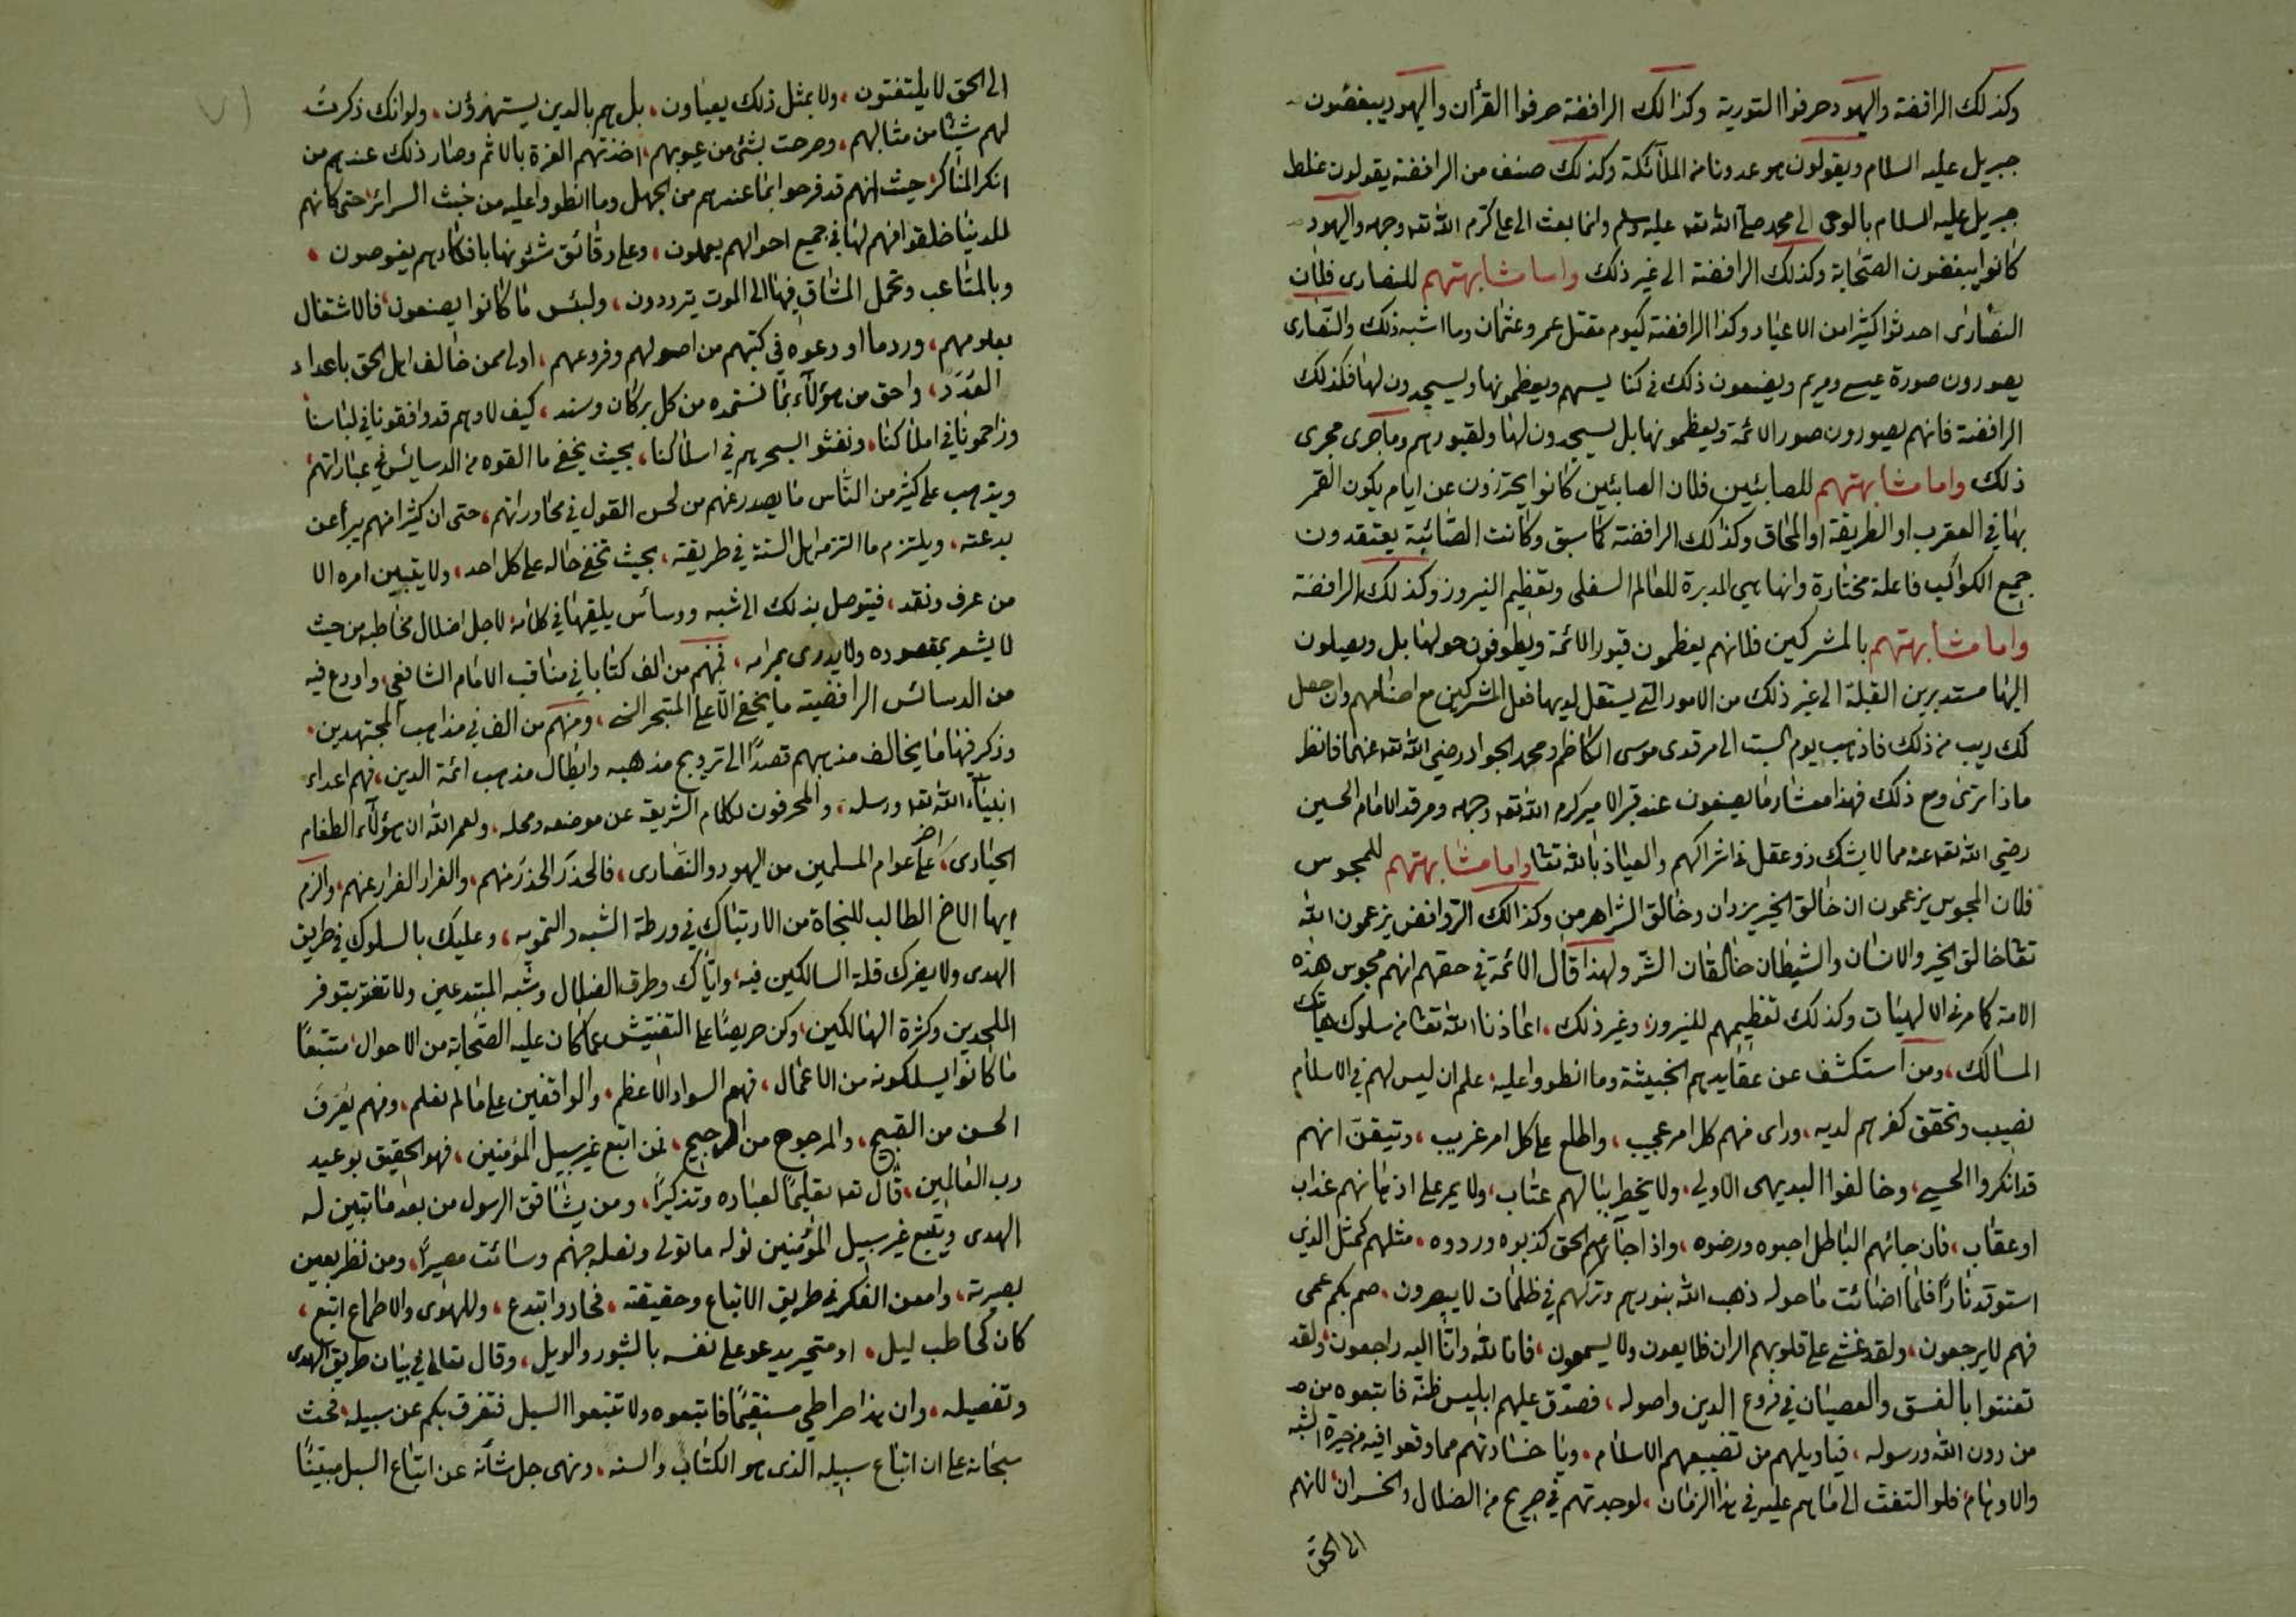 وكذلك الرافضة واليهود حرفوا التورية وكذالك الرافضة حرفوا القرأن واليهود يبغضون
جبريل عليه السلام ويقولون هو عدونا من الملآئكة وكذلك صنف من الرافضة يقولون غلط
جبريل عليه السلام بالوحى الى محمد صلى الله تعه عليه وسلم وانما بعث الى على كرم الله تعه وجهه واليهود
كانوا يبغضون الصحابة وكذلك الرافضة الى غير ذلك واما مشابهتهم للنصارى فلأن
النصارى احدثوا كثيرا من الاعياد وكذا الرافضة كيوم مقتل عمر وعثمان وما اشبه ذلك والنصارى
يصورون صورة عيسى ومريم ويضعون ذلك فى كنايسهم ويعظمونها ويسجدون لها فكذلك
الرافضة فانهم يصورون صور الائمة ويعظمونها بل يسجدون لها ولقبورهم وما جرى مجرى
ذلك واما مشابهتهم للصابئين فلان الصابئين كانوا يحترزون عن ايام يكون القمر
بها في العقرب او الطريقة او المحاق وكذلك الرافضة كما سبق وكانت الصائبة يعتقدون
جميع الكواكب فاعلة مختارة وانها هى المدبرة للعالم السفلى وتعظيم النيروز وكذلك الرافضة
واما مشابهتهم بالمشركين فلانهم يعظمون قبور الائمة ويطوفون حولها بل ويصلون
اليها مستدبرين القبلة الى غير ذلك من الامور التى يستقل لديها فعل المشركين مع اصنامهم وان حصل
لك ريب من ذلك فاذهب يوم السبت الى مرقدى موسى الكاظم ومحمد الجواد رضي الله تعه عنهما فانظر
ماذا ترى ومع ذلك فهذا معشار ما يصنعون عند قبر الامير كرم الله تعه وجهه ومرقد الامام الحسين
رضي الله تعه عنه مما لا يشك ذو عقل فى اشراكهم والعياذ بالله تعا واما مشابهتهم للمجوس
فلان المجوس يزعمون ان خالق الخير يزدان وخالق الشر اهرمن وكذالك الروافض يزعمون الله
تعا خالق الخير والانسان والشيطان خالقان الشر ولهذا قال الائمة في حقهم انهم مجوس هذه
الامة كما مر فى الالهيات وكذلك تعظيمهم للنيروز، وغير ذلك، اعاذنا الله تعا من سلوك هاتيك
المسالك، ومن استكشف عن عقايدهم الخبيثة وما انطووا عليه، علم ان ليس لهم فى الاسلام
نصيب وتحقق كفرهم لديه، وراى منهم كل امر عجيب، واطلع على كل امر غريب، وتيقن انهم
قد انكروا الحسى، وخالفوا البديهى الاولى، ولا يخطر ببالهم عتاب، ولا يمر على اذهانهم عذاب
او عقاب، فان جائهم الباطل احبوه ورضوه، واذا جآءهم الحق كذبوه وردوه، مثلهم كمثل الذى
استوقد نارًا فلما اضائت ما حوله ذهب الله بنورهم وتركهم في ظلمات لا يبصرون، صم بكم عمى
فهم لا يرجعون، ولقد غشى على قلوبهم الران فلا يعون ولا يسمعون، فانا لله وانا اليه راجعون، ولقد
تعنتوا بالفسق والعصيان في فروع الدين واصوله، فصدق عليهم ابليس ظنه فاتبعوه من
من دون الله ورسوله، فياويلهم من تضييعهم الاسلام، ويا خسارتهم مما وقعوا فيه من حيرة الشبه
والاوهام، فلو التفت الى ما هم عليه في هذا الزمان، لوجدتهم في صريح من الضلال والخسران، لانهم
الى الحق
الى الحق لا يلتفتون، ولا بمثل ذلك يعبأون، بل هم بالدين يستهزؤن، ولو انك ذكرت
لهم شيئا من مثالبهم، وصرحت بشئ من عيوبهم، اخذتهم العزة بالاثم وصار ذلك عندهم من
انكر المناكر، حيث انهم قد فرحوا بما عندهم من الجهل وما انطووا عليه من خبث السرائر، حتى كانهم
للدنيا خلقوا فهم لها في جميع احوالهم يعملون، وعلى دقائق شئونها بافكارهم يغوصون،
وبالمتاعب وتحمل المشاق فيها الى الموت يترددون، ولبئس ما كانوا يصنعون، فالاشتغال
بعلومهم، ورد ما اودعوه في كتبهم من اصولهم وفروعهم، اولى ممن خالف اهل الحق باعداد
العدد، واحق من هؤلآء بما نستمده من كل بركان وسند، كيف لا وهم قد وافقونا في لباسنا،
وزاحمونا في املاكنا، ونفثوا السحرهم في اسلاكنا، بحيث يخفى ما القوه من الدسائس في عباراتهم،
ويذهب على كثير من الناس ما يصدر عنهم من لحن القول في محاوراتهم، حتى ان كثيرا منهم يبرأ عن
بدعته، ويلتزم ما التزمه اهل السنة في طريقته، بحيث تخفى حاله على كل احد، ولا يتبين امره الا
من عرف ونقد، فيتوصل بذلك الى شبه ودسائس يلقيها في كلامه لاجل اضلال مخاطبه من حيث
لا يشعر بمقصوده ولا يدرى بمرامه، فمنهم من الف كتابا في مناقب الامام الشافعي، واودع فيه
من الدسائس الرافضية ما يخفى الا على المتبحر، ومنهم من الف في مذاهب المجتهدين،
وذكر فيها ما يخالف مذهبهم قصدًا الى ترويج مذهبه وابطال مذهب ائمة الدين، فهم اعداء
انبيآء الله تعه ورسله، والمحرفون لكلام الشريعة عن موضعه ومحله، ولعمر الله ان هؤلآء الطغام
الحيارى، اضر على عوام المسلمين من اليهود والنصارى، فالحذر الحذر منهم، والفرار الفرار عنهم، والزم
ايها الاخ الطالب للنجاة من الارتباك في ورطة الشبه والتمويه، وعليك بالسلوك في طريق
الهدى ولا يغرك قلة السالكين فيه، واياك وطرق الضلال وشبه المبتدعين ولا تغتر بتوفر
الملحدين وكثرة الهالكين، وكن حريصًا على التفتيش عما كان عليه الصحابة من الاحوال، متتبعًا
ما كانوا يسلكونه من الاعمال، فهم السواد الاعظم، والواقفين على ما لم نعلم، ومنهم يعرف
الحسن من القبيح، والمرجوح من الرجيح، فمن اتبع غير سبيل المؤمنين، فهو الحقيق بوعيد
رب العالمين، قال تعه تعليمًا لعباده وتذكيرًا، ومن يشاقق الرسول من بعد ما تبين له
الهدى ويتبع غير سبيل المؤمنين نوله ما تولى ونصله جهنم وسائت مصيرًا، ومن نظر بعين
بصيرته، وامعن الفكر في طريق الاتباع وحقيقته، فحاد وابتدع، وللهوى والاطماع اتبع،
كان كحاطب ليل، او متحير يدعو على نفسه بالثبور والويل، وقال تعالى في بيان طريق الهدى
وتفصيله، وان هذا صراطي مستقيمًا فاتبعوه ولا تتبعوا السبل فتفرق بكم عن سبيله، فحث
سبحانه على ان اتباع سبيله الذى هو الكتاب والسنه، ونهى جل شأنه عن اتباع السبل مبينًا